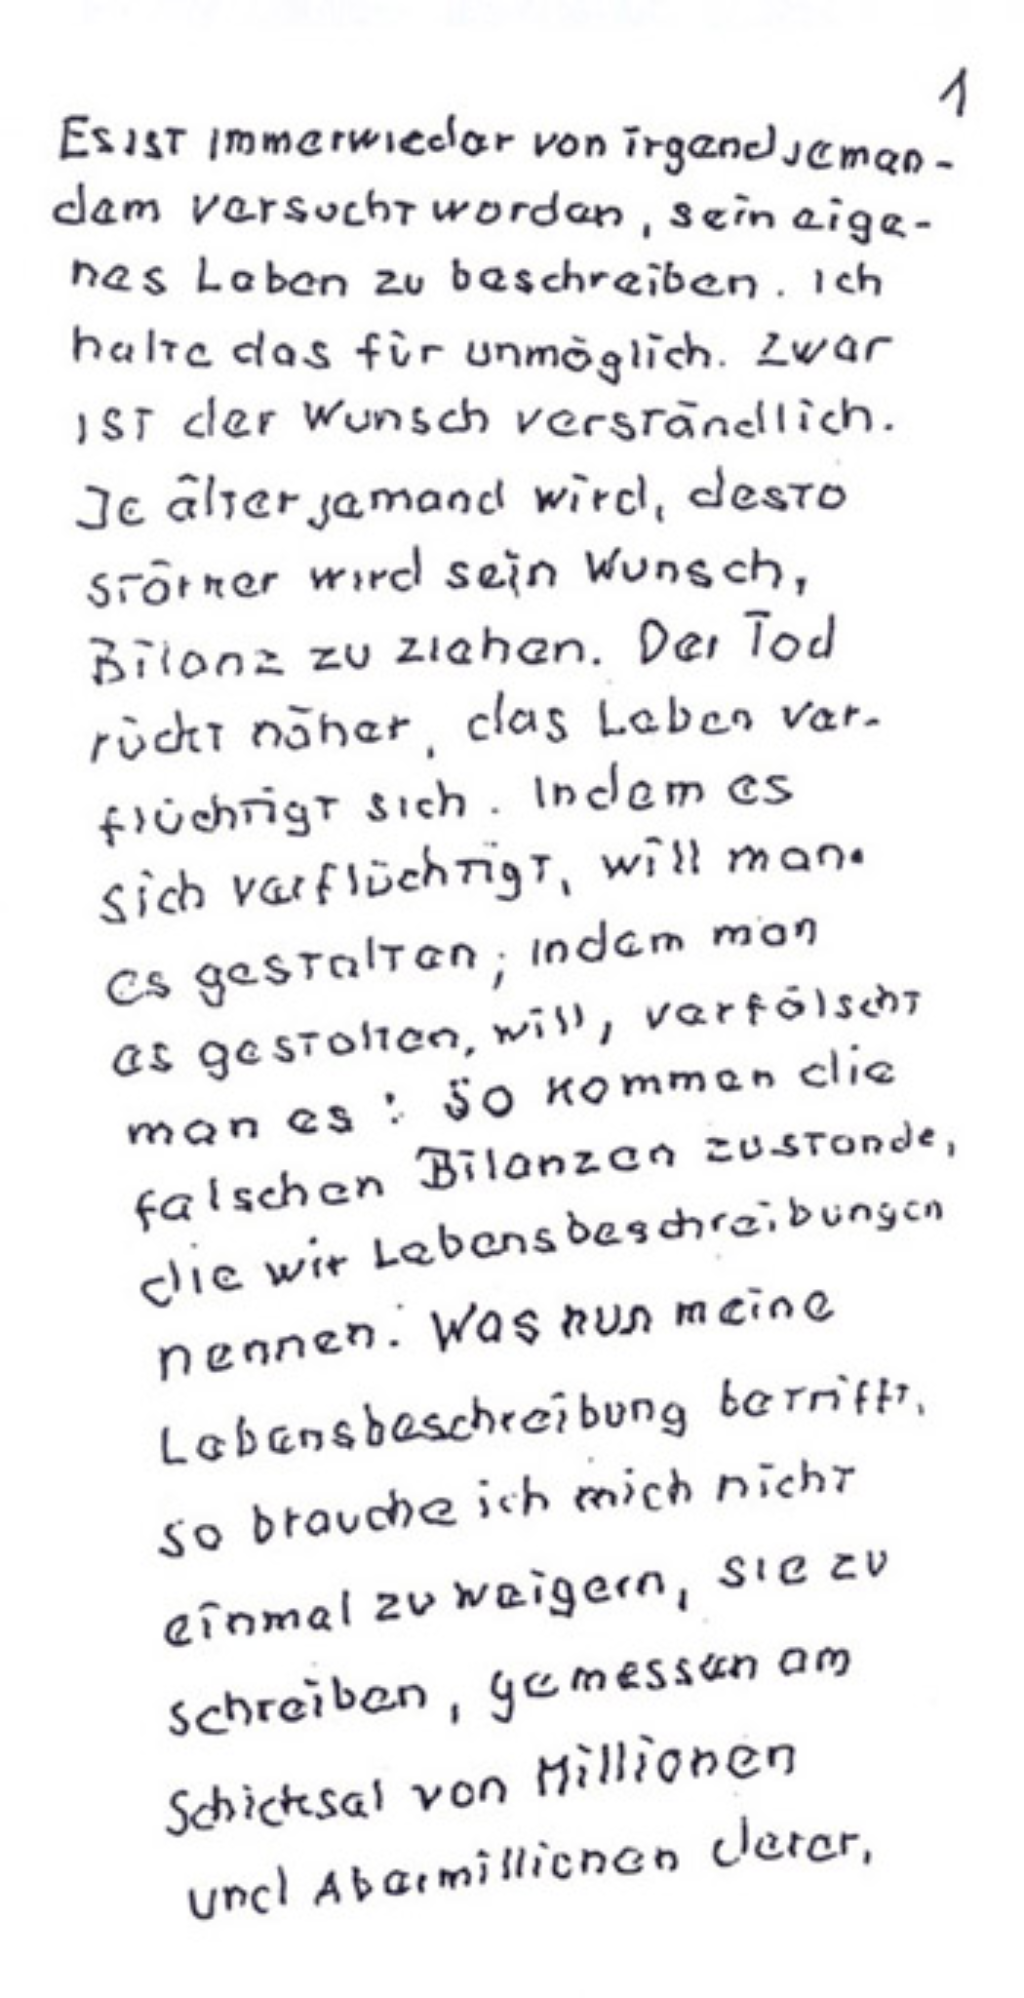 1
Es ist immer wieder von irgend jeman-
dem versucht worden, sein eige-
nes Leben zu beschreiben. Ich
halte das für unmöglich. Zwar
ist der Wunsch verständlich.
Je älter jemand wird, desto
stärker wird sein Wunsch,
Bilanz zu ziehen. Der Tod
rückt näher, das Leben ver-
flüchtigt sich. Indem es
sich verflüchtigt, will man
es gestalten; indem man
es gestalten, will, verfälscht
man es: So kommen die
falschen Bilanzen zustande,
die wir Lebensbeschreibungen
nennen. Was nun meine
Lebensbeschreibung betrifft,
so brauche ich mich nicht
einmal zu weigern, sie zu
schreiben, gemessen am
Schicksal von Millionen
und Abermillionen derer,